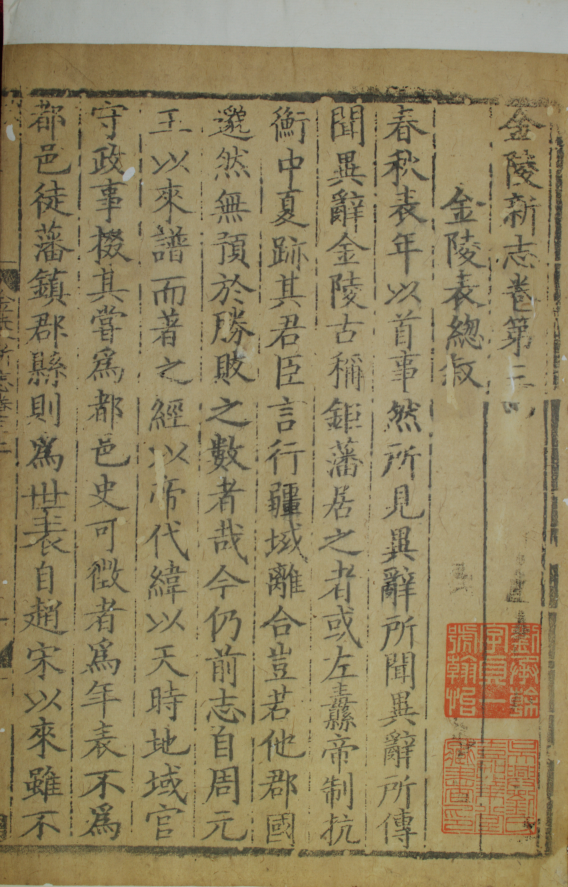 金陵新志卷第三
金陵表總叙
春秋表年以首事然所見異辭所聞異辭所傳
聞異辭金陵古稱鉅藩居之者或左纛帝制抗
衡中夏跡其君臣言行疆域離合豈若他郡國
邈然無預於勝敗之數者哉今仍前志自周元
王以來譜而著之經以帝代緯以天時地域官
守政事掇其嘗爲都邑史可徵者爲年表不爲
都邑徒藩鎮郡縣則爲世表自趙宋以來雖不
劉承幹
字貞一
號翰怡
吳興劉氏
嘉業堂
藏書印